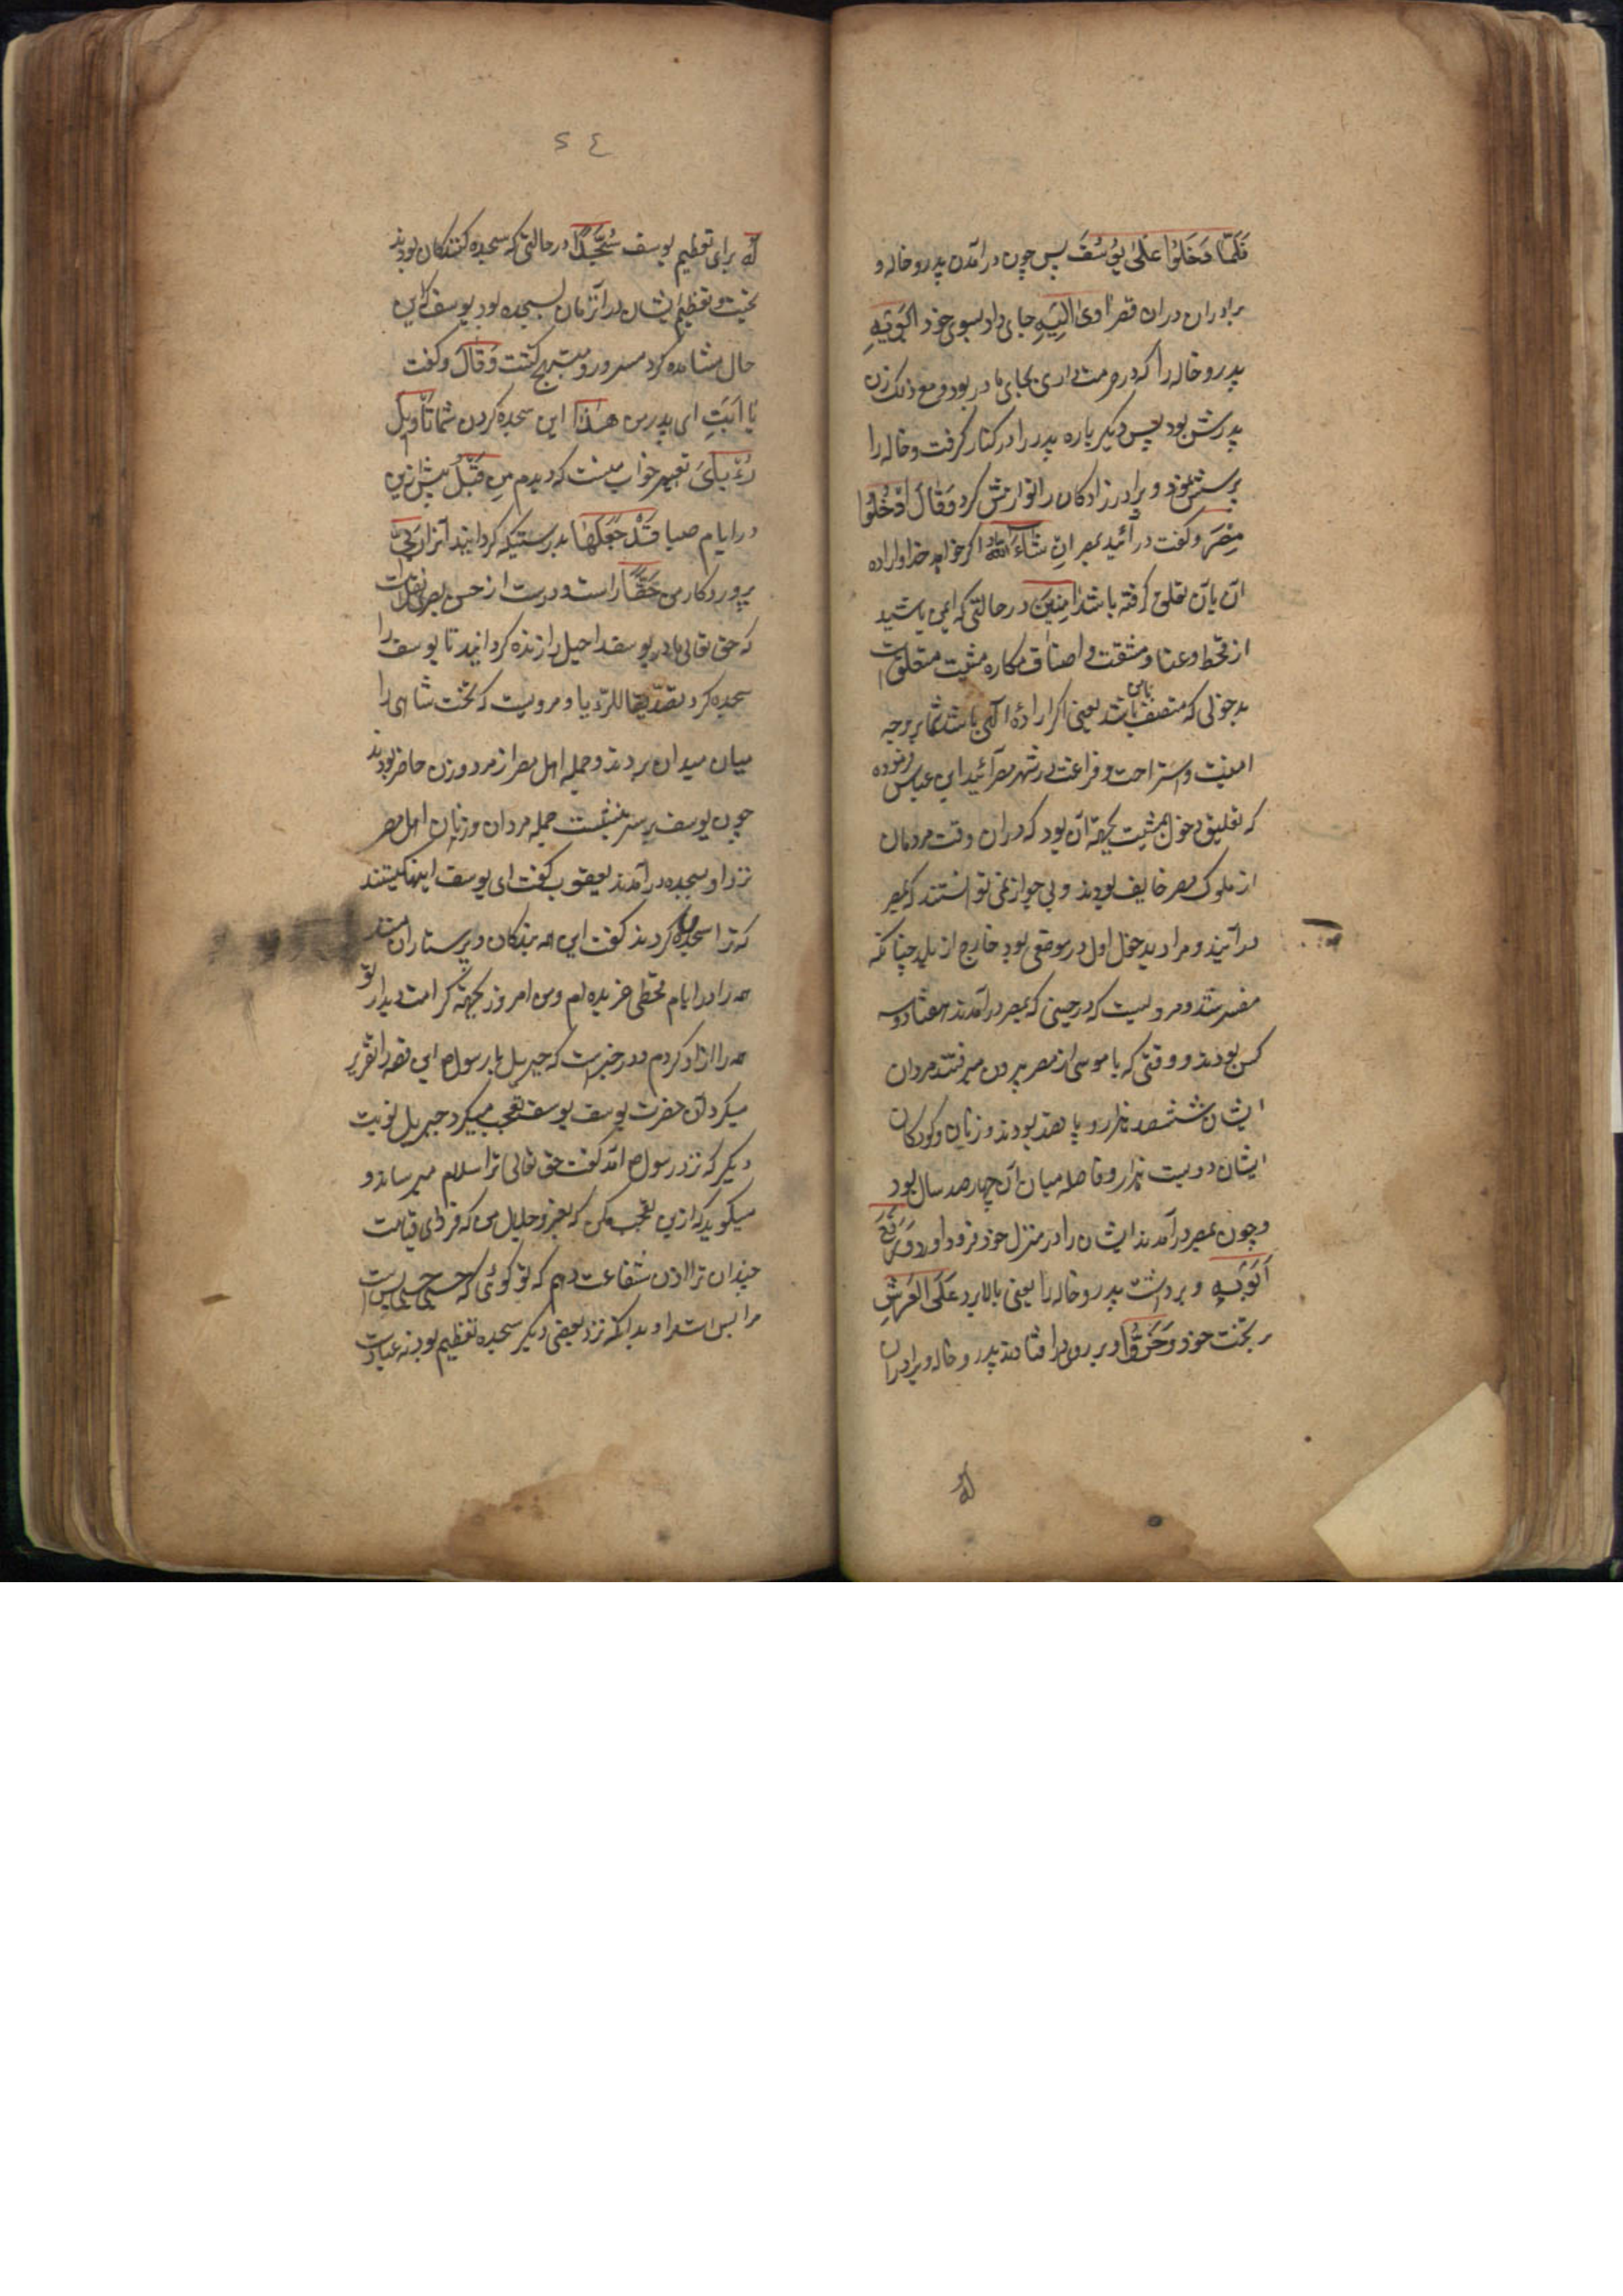 فَلَمَّا دَخَلُوا عَلَىٰ يُوسُفَ پس چون درآمدن پدر و خاله و
برادران دران قصر اوىٰ اِلَيْهِ جای داد بسوی خود اَبَوَيْهِ
پدر و خاله را که در حرمت داری بجای مادر بود و مع ذلک زن
پدرش بود پس دیگر باره پدر را در کنار گرفت و خاله را
پرسش نمود و برادر زادکان را نوازش کرد وَقَالَ ادْخُلُوا
مِصْرَ و گفت در آئید بمصر اِنْ شَاءَ اللّٰهُ اگر خواهد خدا و اراده
آن بآن تعلق گرفته باشد اٰمِنِينَ در حالتی که ایمن باشید
از قحط و عنا و مشقت و اصناف مکاره مشیت متعلق است
بدخولی که متصف بامن باشد یعنی اگر ارادهٔ الهی باشد شما بر وجه
امنیت و استراحت و فراغت در شهر مصر آئید ابن عباس فرموده
که تعلیق دخول بمشیت بجهة آن بود که دران وقت مردمان
از ملوک مصر خایف بودند و بی جواز نمی توانستند که بمصر
درآیند و مراد بدخول اول در موضعی بود خارج از بلد چنانکه
مفسر شد و مرویست که در حینی که بمصر درآمدند هفتاد و سه
کس بودند و وقتی که با موسی از مصر بیرون میرفتند مردان
ایشان ششصد هزار و پانصد بودند و زنان و کودکان
ایشان دویست هزار و فاصله میان آن چهار صد سال بود
و چون بمصر درآمدند ایشان را در منزل خود فرود آورد وَرَفَعَ
اَبَوَيْهِ و برداشت پدر و خاله را یعنی بالا برد عَلَى العَرْشِ
بر تخت خود وَخَرُّوا و بر روی در افتادند پدر و خاله و برادران
لَهُ
٥٤
لَهُ برای تعظیم یوسف سُجَّدًا در حالتی که سجده کنندکان بودند
تحیت و تعظیم ایشان در آنزمان بسجده بود یوسف که این
حال مشاهده کرد مسرور و مبتهج کشت وَقَالَ و گفت
يَا اَبَتِ ای پدر من هٰذَا این سجده کردن شما تَأْوِيلُ
رُءْيَايَ تعبیر خواب منست که دیدم مِن قَبْلُ پیش ازین
در ایام صبا قَدْ جَعَلَهَا بدرستیکه کردانید آنرا رَبِّي
پروردکار من حَقًّا راست و درست از حسن بصری نقلست
که حق تعالی مادر یوسف راحیل را زنده کردانید تا یوسف را
سجده کرد تصدیقا للرؤیا و مرویست که تخت شاهی را
میان میدان بردند و جمله اهل مصر از مرد و زن حاضر بودند
چون یوسف بر سریر نشست جمله مردان و زنان اهل مصر
نزد او بسجده درآمدند یعقوب گفت ای یوسف اینها کیستند
که ترا سجده کردند گفت این همه بندکان و پرستاران منند
همه را در ایام قحطی خریده ام و من امروز بجهة کرامت دیدار تو
همه را آزاد کردم و در خبرست که جبریل با رسول ص این قصه را تقریر
میکرد آن حضرت یوسف یوسف تعجب میکرد جبریل نوبت
دیگر که نزد رسول ص آمد گفت حق تعالی ترا سلام میرساند و
میکوید که ازین تعجب مکن که بعز و جلال من که فردای قیامت
چندان ترا اذن شفاعت دهم که تو کوئی که حسبی حسبی بس است
مرا بس است و بدانکه نزد بعضی دیگر سجده تعظیم بود نه عبادت